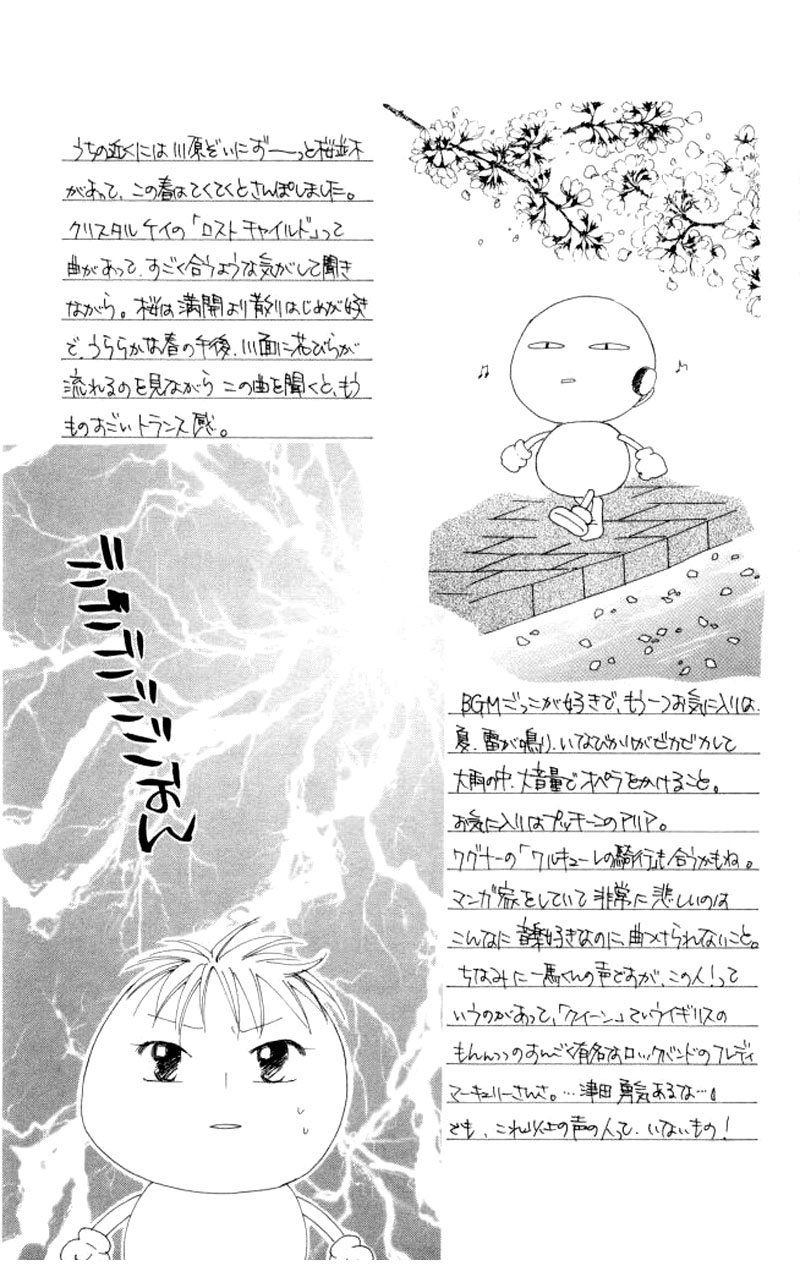 うちの近くには川原ぞいにずーーっと桜並木
があって、この春はてくてくとさんぽしました。
クリスタル ケイの「ロスト チャイルド」って
曲があって、すごく合うような気がして聞き
ながら。桜は満開より散りはじめが好き
で、うららかな春の午後、川面に花びらが
流れるのを見ながら この曲を聞くと、もう
ものすごいトランス感。
♪♫
♪
BGMごっこが好きで、もう一つお気に入りは
夏、雷が鳴り、いなびかりがピカピカして
大雨の中、大音量でオペラをかけること。
お気に入りはプッチーニのアリア。
ワグナーの「ワルキューレの騎行」も合うかもね。
マンガ家をしていて 非常に 悲しいのは
こんなに 音楽好きなのに、曲つけられないこと。
ちなみに 一馬くんの声ですが、この人！って
いうのがあって、「クイーン」ていうイギリスの
もんんっっのすんごく有名なロックバンドのフレディ
マーキュリーさんさ。…津田 勇気あるな…。
でも、これ以上の声の人って、いないもの！